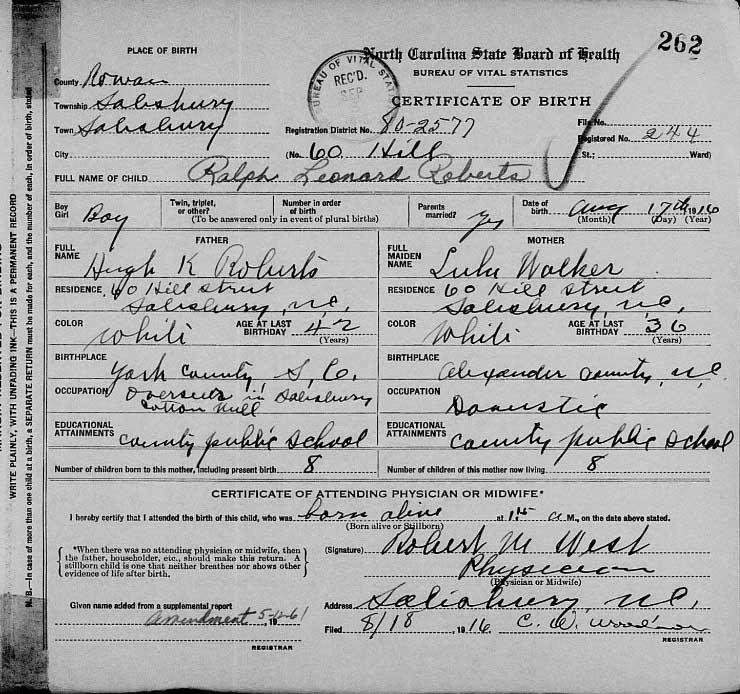 262
PLACE OF BIRTH
North Carolina State Board of Health
BUREAU OF VITAL STATISTICS
BUREAU OF VITAL STAT
REC'D.
SEP
CERTIFICATE OF BIRTH
County Rowan
Township Salisbury
Town Salisbury
Registration District No. 80-2577
File No.
Registered No. 244
City (No. 60 Hill St.; Ward)
FULL NAME OF CHILD Ralph Leonard Roberts
Boy Girl Boy
Twin, triplet, or other?
Number in order of birth
(To be answered only in event of plural births)
Parents married? Yes
Date of birth Aug 17th 1916
(Month) (Day) (Year)
FATHER
FULL NAME Hugh K Roberts
RESIDENCE 60 Hill street
Salisbury, N.C.
COLOR White
AGE AT LAST BIRTHDAY 42
(Years)
BIRTHPLACE York County, S. C.
OCCUPATION Overseer in Salisbury
Cotton Mill
EDUCATIONAL ATTAINMENTS County public school
MOTHER
FULL MAIDEN NAME Lula Walker
RESIDENCE 60 Hill street
Salisbury, N.C.
COLOR White
AGE AT LAST BIRTHDAY 36
(Years)
BIRTHPLACE Alexander County, N.C.
OCCUPATION Domestic
EDUCATIONAL ATTAINMENTS County public school
Number of children born to this mother, including present birth 8
Number of children of this mother now living 8
CERTIFICATE OF ATTENDING PHYSICIAN OR MIDWIFE*
I hereby certify that I attended the birth of this child, who was born alive at a M., on the date above stated.
(Born alive or Stillborn)
*When there was no attending physician or midwife, then
the father, householder, etc., should make this return. A
stillborn child is one that neither breathes nor shows other
evidence of life after birth.
(Signature) Robert M West
Physician
(Physician or Midwife)
Given name added from a supplemental report
Amendment 5-12-61, 19
REGISTRAR
Address Salisbury N.C.
Filed 8/18, 1916 C. W.
REGISTRAR
WRITE PLAINLY, WITH UNFADING INK—THIS IS A PERMANENT RECORD
N. B.—In case of more than one child at a birth, a SEPARATE RETURN must be made for each, and the number of each, in order of birth, stated